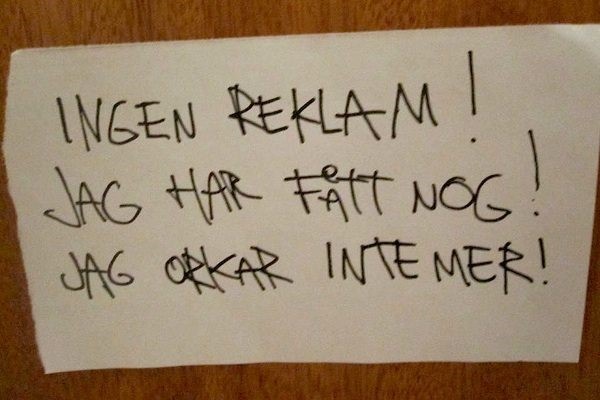 INGEN REKLAM!
JAG HAR FÅTT NOG!
JAG ORKAR INTE MER!